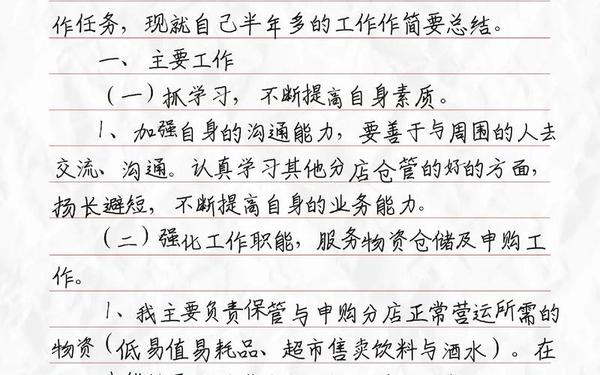 作任务，现就自己半年多的工作作简要总结。
一、主要工作
（一）抓学习，不断提高自身素质。
1、加强自身的沟通能力，要善于与周围的人去
交流、沟通。认真学习其他分店仓管的好的方面，
扬长避短，不断提高自身的业务能力。
（二）强化工作职能，服务物资仓储及申购工
作。
1、我主要负责保管与申购分店正常营运所需的
物资（低易值易耗品、超市售卖饮料与酒水）。在